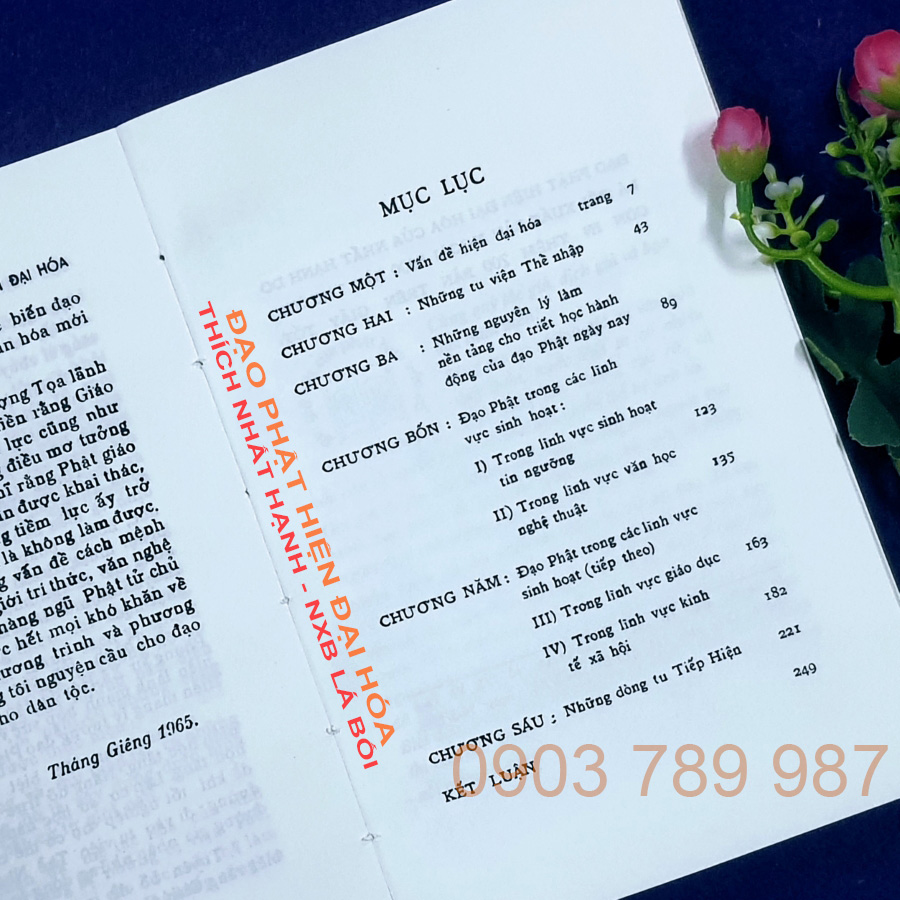 ĐẠI HÓA
biến đạo
hóa mới
Tọa lãnh
rằng Giáo
lực cũng như
điều mơ tưởng
rằng Phật giáo
được khai thác,
tiềm lực ấy trở
là không làm được.
vấn đề cách mệnh
giới trí thức, văn nghệ
hàng ngũ Phật tử chủ
hết mọi khó khăn về
chương trình và phương
tôi nguyện cầu cho đạo
cho dân tộc.
Tháng Giêng 1965.
MỤC LỤC
CHƯƠNG MỘT : Vấn đề hiện đại hóa trang 7
CHƯƠNG HAI : Những tu viện Thể nhập 43
CHƯƠNG BA : Những nguyên lý làm
nền tảng cho triết học hành
động của đạo Phật ngày nay 89
CHƯƠNG BỐN : Đạo Phật trong các lĩnh
vực sinh hoạt :
I) Trong lĩnh vực sinh hoạt
tín ngưỡng 123
II) Trong lĩnh vực văn học
nghệ thuật 135
CHƯƠNG NĂM : Đạo Phật trong các lĩnh vực
sinh hoạt (tiếp theo)
III) Trong lĩnh vực giáo dục 163
IV) Trong lĩnh vực kinh
tế xã hội 182
CHƯƠNG SÁU : Những dòng tu Tiếp Hiện 221
KẾT LUẬN 249
ĐẠO PHẬT HIỆN ĐẠI HÓA
THÍCH NHẤT HẠNH - NXB LÁ BỐI
0903 789 987